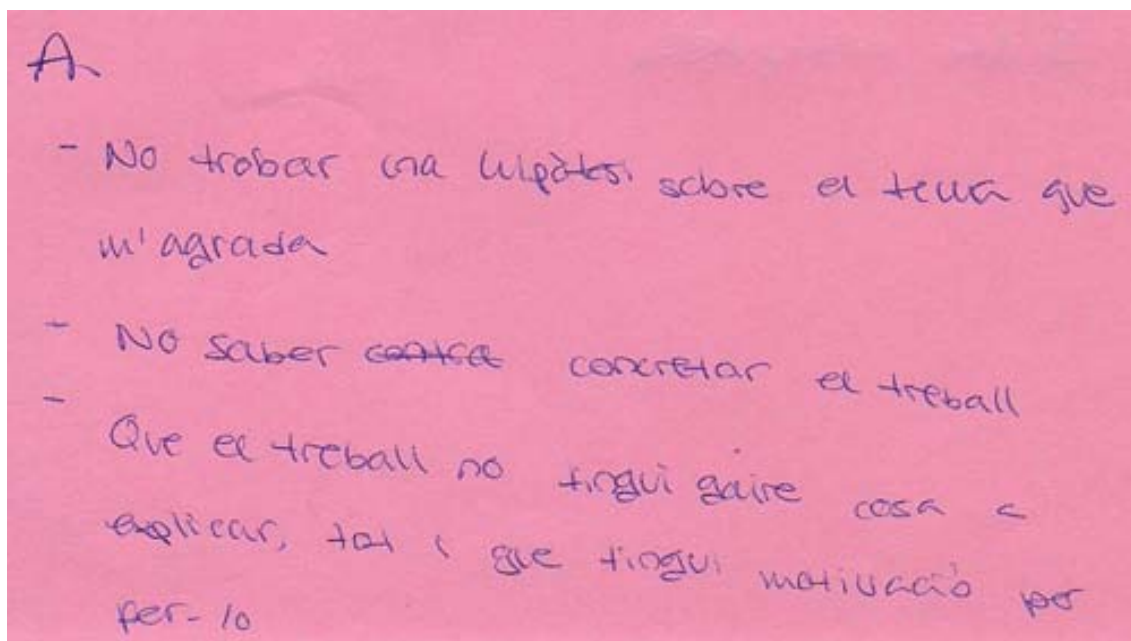 A
- No trobar una hipòtesi sobre el tema que
m'agrada
- No saber contre concretar el treball
- Que el treball no tingui gaire cosa a
explicar, tot i que tingui motivació per
fer-lo